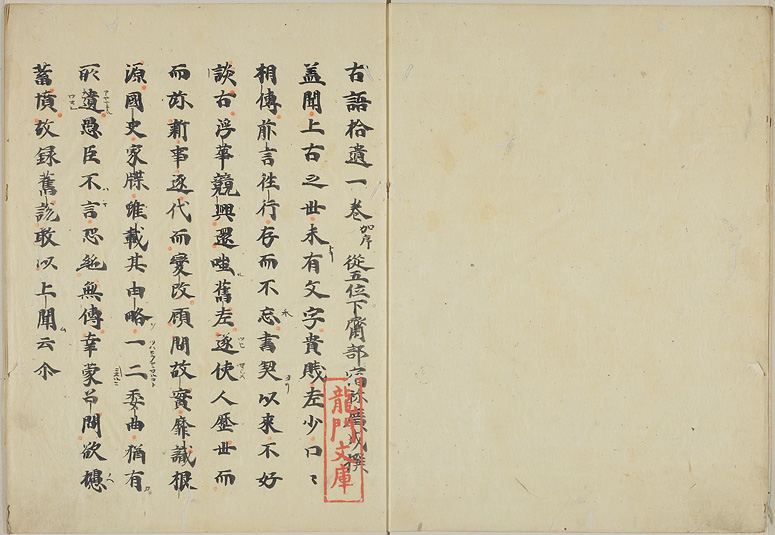 古語拾遺一巻 加序 從五位下齋部宿祢廣成撰
盖聞上古之世未有文字貴賎老少口〻
相傳前言徃行存而不忘書契以来不好
談古浮華競興還嗤舊老遂使人歴世而
而弥新事逐代而變改顧問故實靡識根
源國史家牒雖載其由略一二委曲猶有
所遺愚臣不言恐絶無傳幸蒙召問欲攄
蓄憤故録舊說敢以上聞云尒
龍門文庫